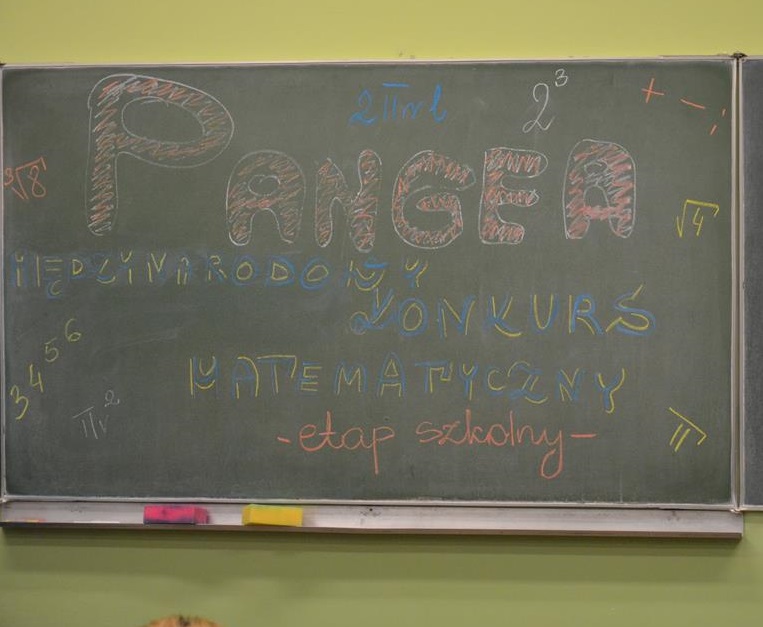 2πr 2³ + - :
∛8 PANGEA √4
MIĘDZYNARODOWY
KONKURS
3 4 5 6 MATEMATYCZNY
πr² -etap szkolny- π